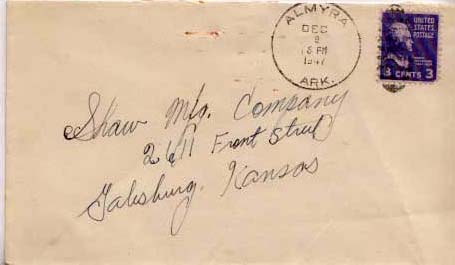 ALMYRA
DEC
1947
ARK.
UNITED
STATES
POSTAGE
3 CENTS 3
Shaw Mfg. Company
2611 Front Street
Galesburg, Kansas